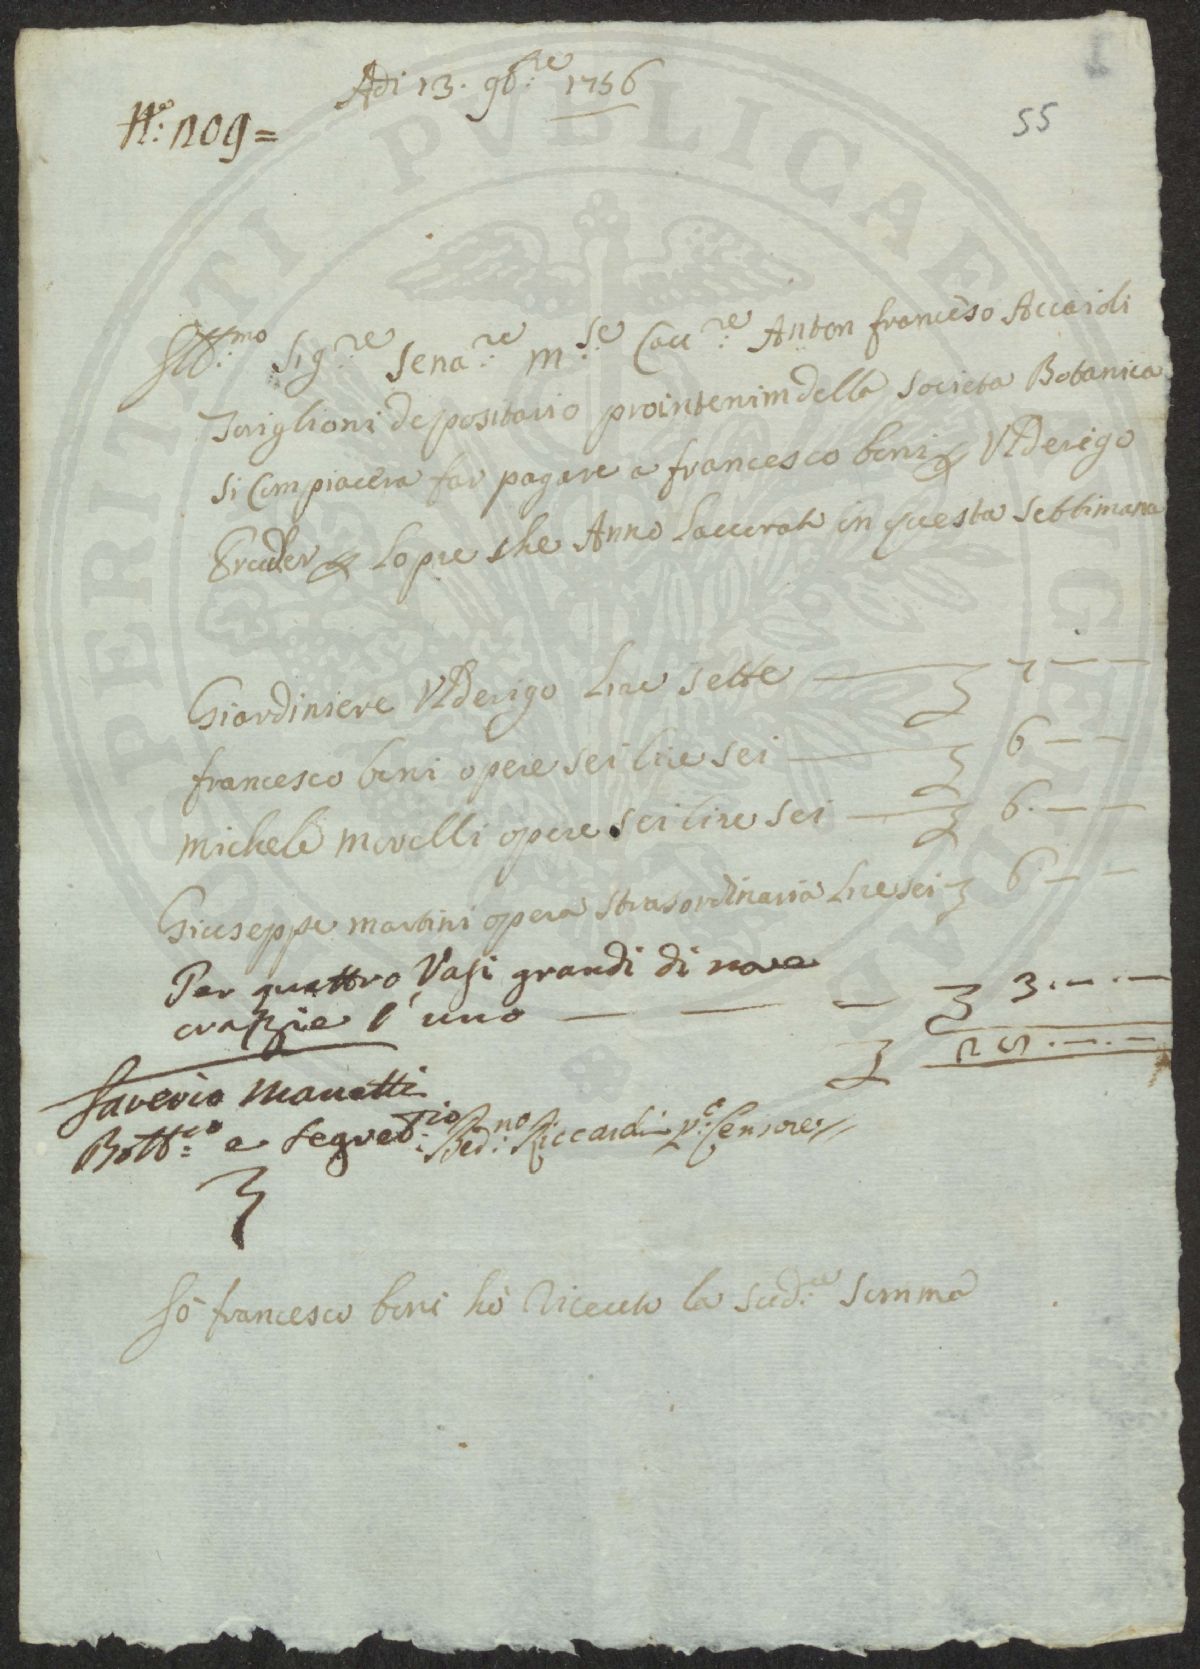 Adi 13. 9b:re 1756
N.o: 209=
55
Ill:mo Sig:re Sena:re M:se Cau:re Anton francesco Accaioli
Toriglioni depositario prointenim della Societa Botanica
si Compiacera far pagare a francesco boni e Ulderigo
Gruder e Lopre che Anno Lauorati in questa settimana
Giardiniere Ulderigo Lire sette 7.— —
francesco boni opere sei lire sei 6— —
Michele Morelli opere sei lire sei 6.— —
Giuseppe martini opera strasordinaria Lire sei 6.— —
Per quattro Vasi grandi di nove
crazie l'uno — — — 3.—.—
28.—.—
Saverio Manetti
Bott:co e Segret:rio Bed:no Riccardi P:o Censore
Io francesco boni hò Riceuto la Sud:ta Somma
GEORGOFILI
PROSPERITATI PVBLICAE AVGENDAE